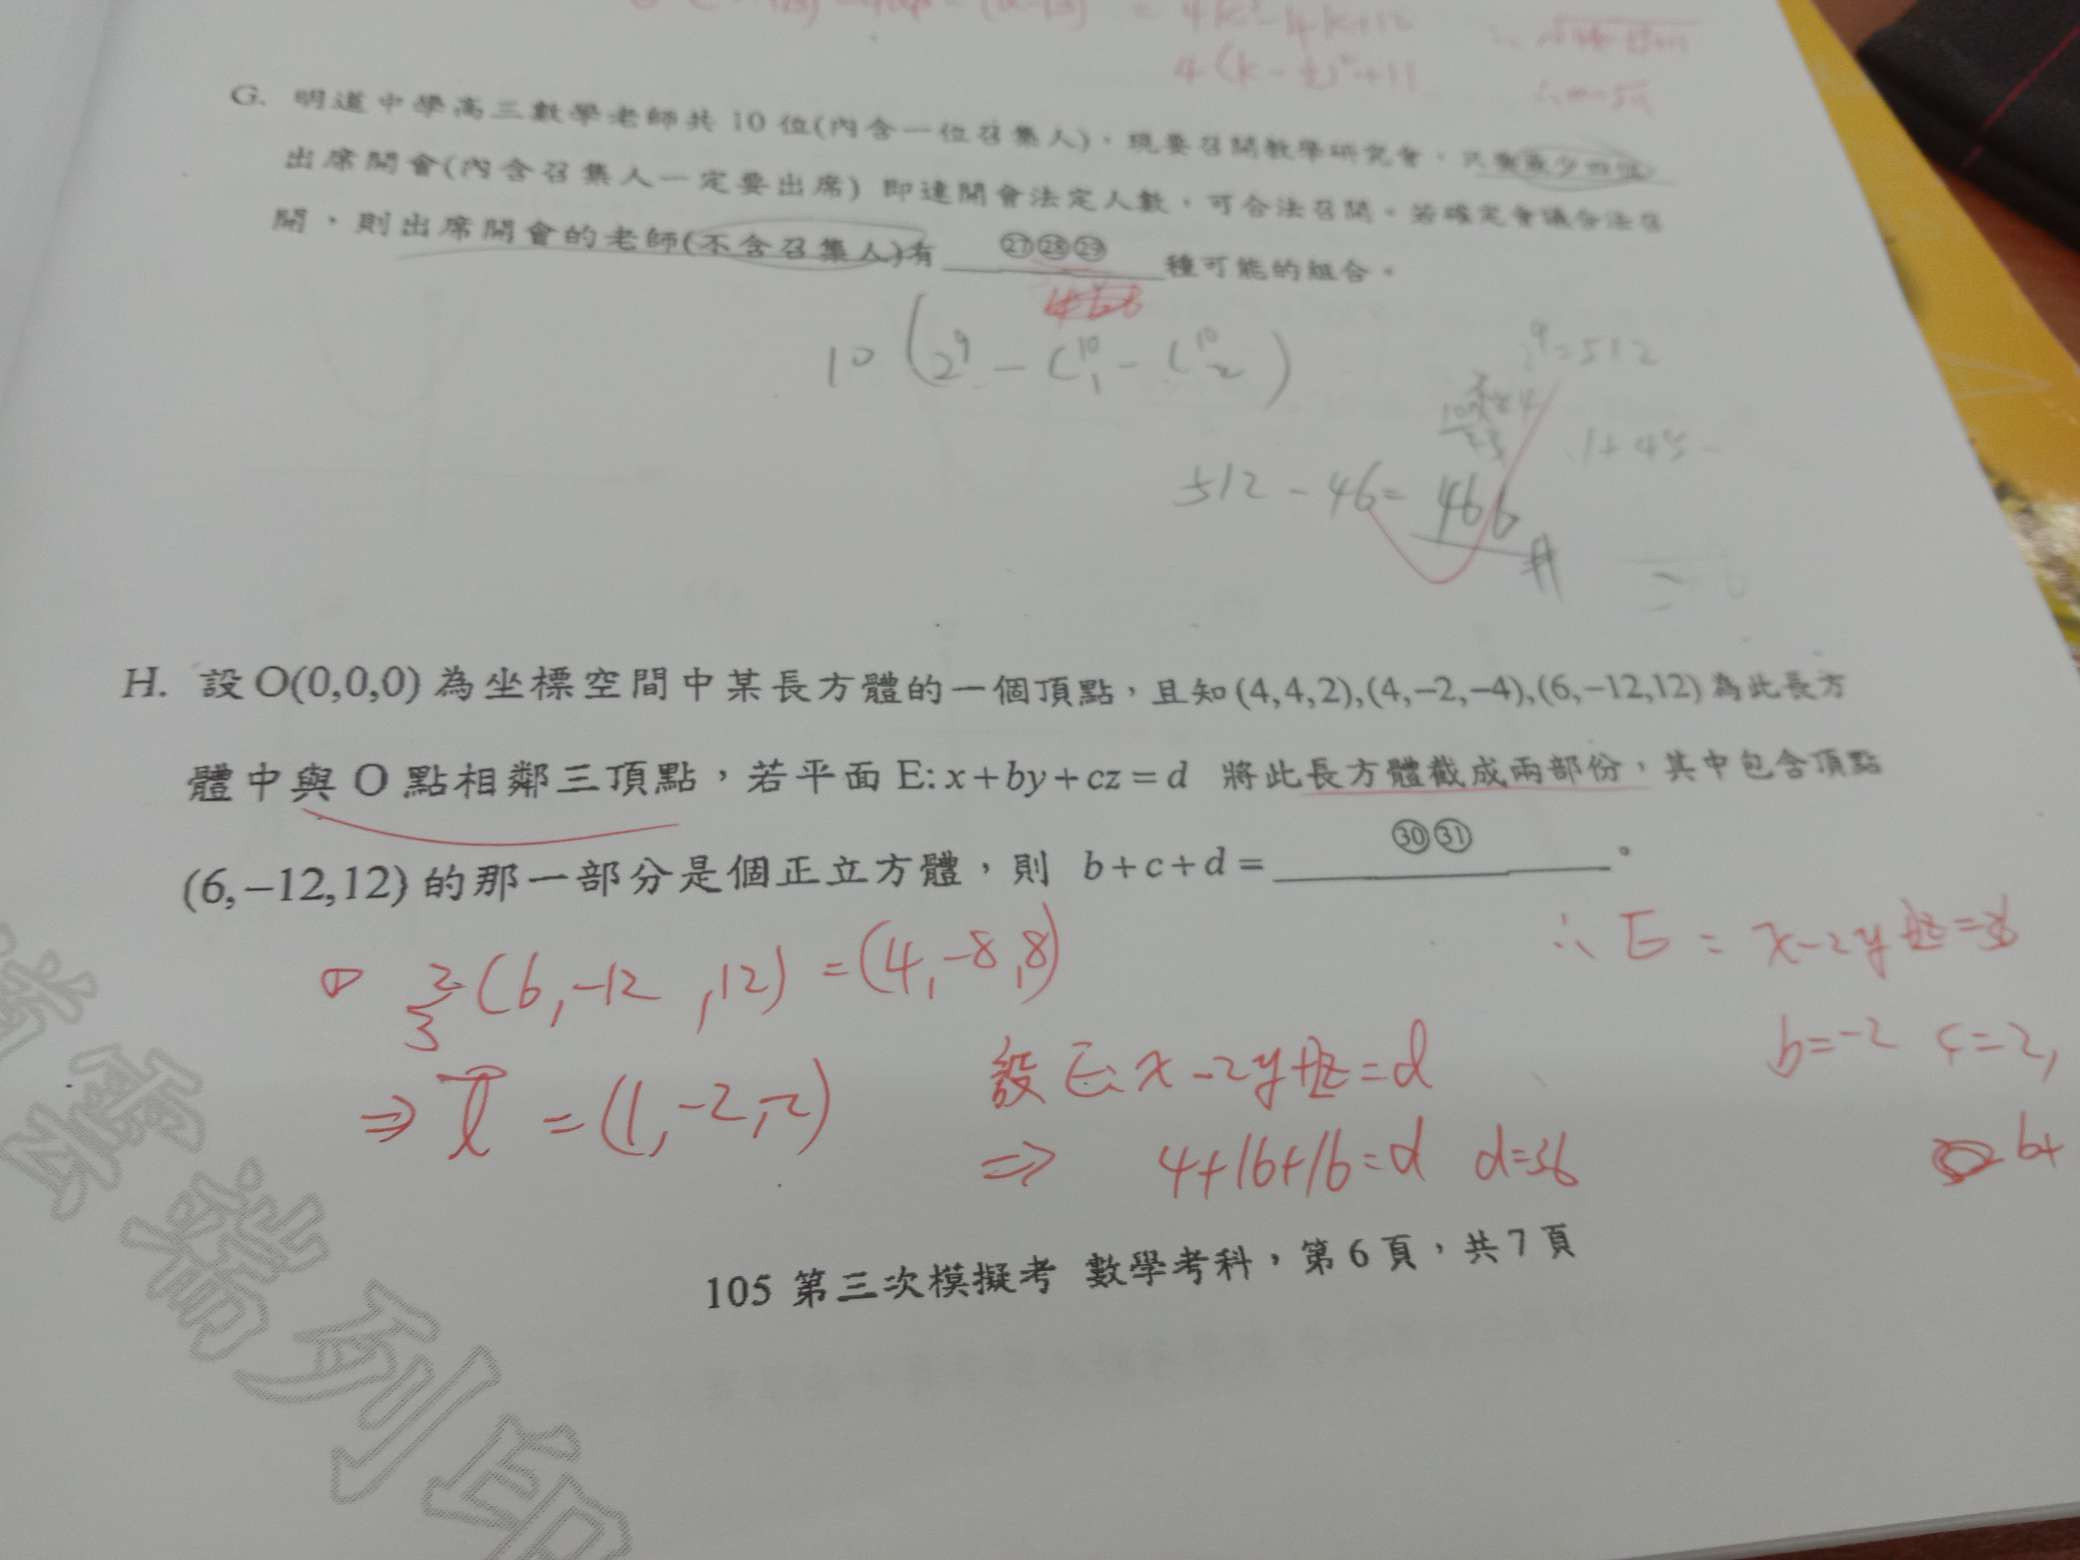 4k²-4k+12
4(k-½)²+11
G. 明道中學高三數學老師共 10 位(內含一位召集人)，現要召開教學研究會，只要最少四位
出席開會(內含召集人一定要出席) 即達開會法定人數，可合法召開。若確定會議合法召
開，則出席開會的老師(不含召集人)有 ㉗㉘㉙ 種可能的組合。
10 (2⁹ - C¹⁰₁ - C¹⁰₂)
⁹=512
1+45
512 - 46 = 466 #
H. 設 O(0,0,0) 為坐標空間中某長方體的一個頂點，且知(4,4,2),(4,−2,−4),(6,−12,12)為此長方
體中與 O 點相鄰三頂點，若平面 E: x+by+cz=d 將此長方體截成兩部份，其中包含頂點
(6,−12,12) 的那一部分是個正立方體，則 b+c+d= ㉚㉛ 。
2/3 (6,-12,12) = (4,-8,8)
∴ E = x-2y+2z=36
⇒ = (1,-2,2)
設 E: x-2y+2z=d
b=-2 c=2,
⇒ 4+16+16=d d=36
b+
105 第三次模擬考 數學考科，第 6 頁，共 7 頁